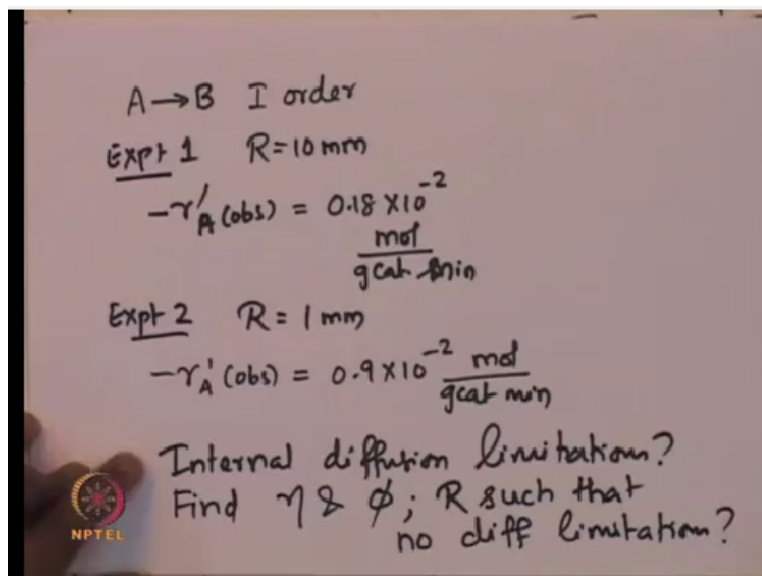 A → B I order
Expt 1 R = 10 mm
-r'A (obs) = 0.18 × 10^-2
mol
gcat min
Expt 2 R = 1 mm
-rA' (obs) = 0.9 × 10^-2 mol
gcat min
Internal diffusion limitation?
Find η & φ; R such that
no diff limitation?
NPTEL